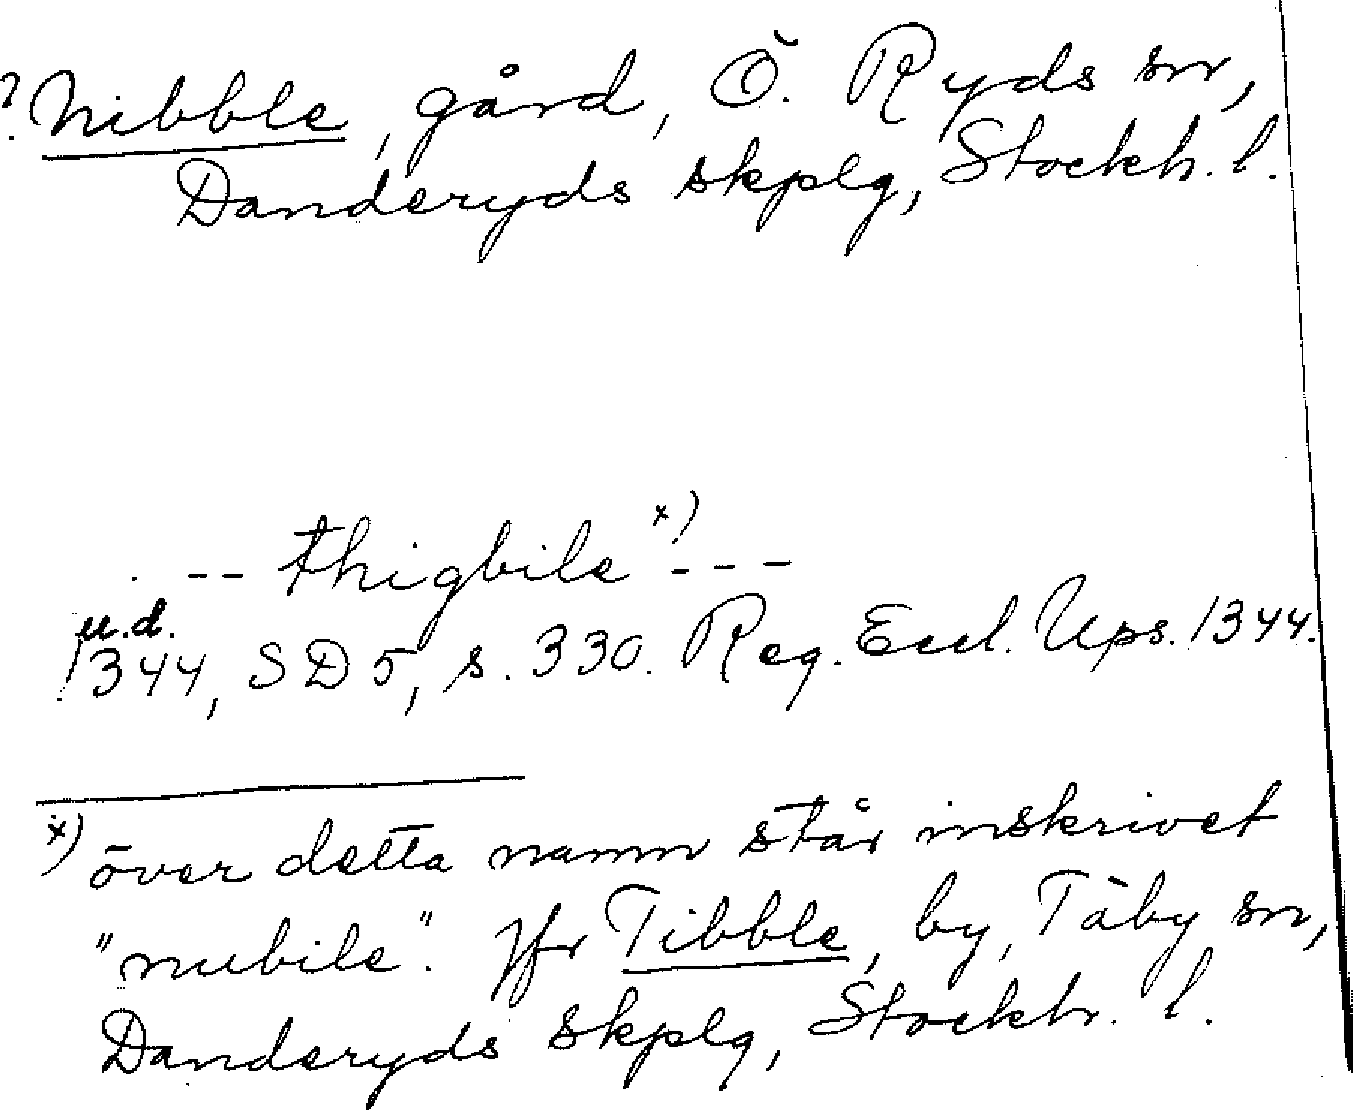 ? Nibble, gård, Ö. Ryds sn,
Danderyds skplg, Stockh. l.
-- thigbile x) ---
u.d.
1344, SD 5, s. 330. Reg. Eccl. Ups. 1344.
x) över detta namn står inskrivet
"nubile". Jfr Tibble, by, Täby sn,
Danderyds skplg, Stockh. l.